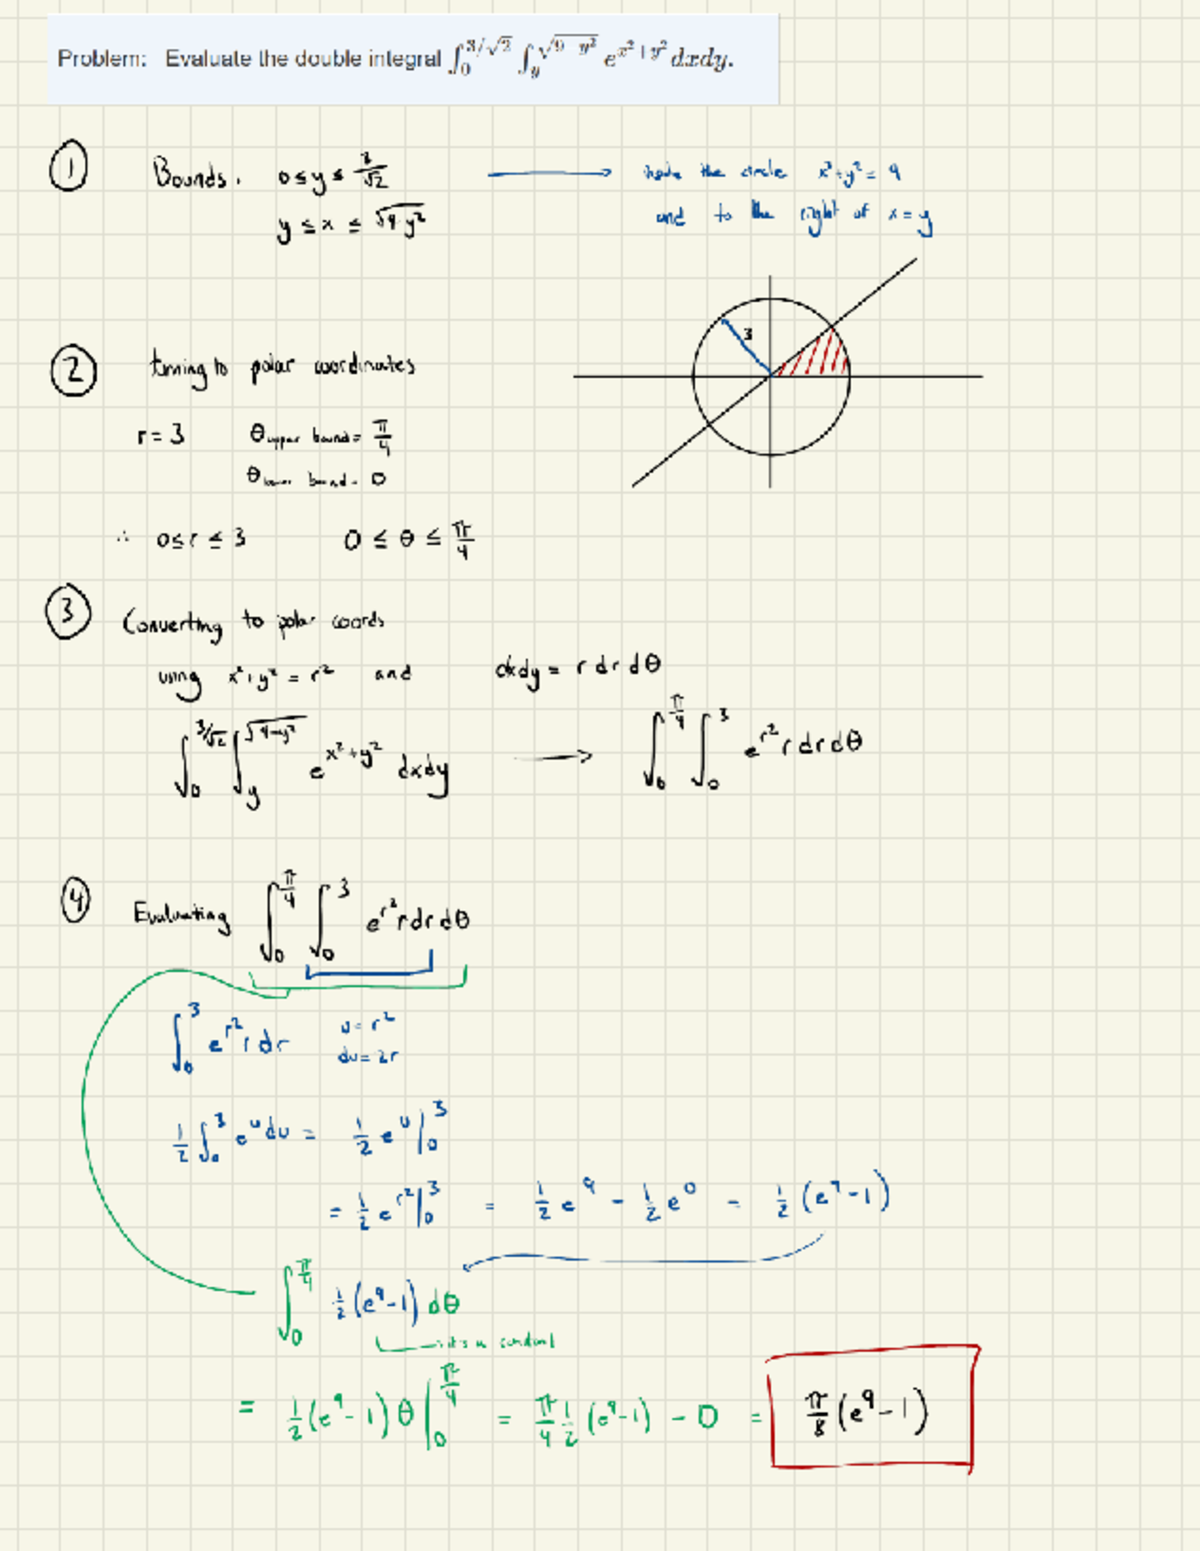 Problem: Evaluate the double integral ∫_0^{3/√2} ∫_y^{√(9-y²)} e^{x²+y²} dxdy.
① Bounds. 0 ≤ y ≤ 3/√2 ⟶ inside the circle x²+y² = 9
y ≤ x ≤ √(9-y²) and to the right of x = y
3
② turning to polar coordinates
r = 3 θ upper bound = π/4
θ lower bound = 0
∴ 0 ≤ r ≤ 3 0 ≤ θ ≤ π/4
③ Converting to polar coords
using x²+y² = r² and dxdy = r dr dθ
∫_0^{3/√2} ∫_y^{√(9-y²)} e^{x²+y²} dxdy ⟶ ∫_0^{π/4} ∫_0^3 e^{r²} r dr dθ
④ Evaluating ∫_0^{π/4} ∫_0^3 e^{r²} r dr dθ
∫_0^3 e^{r²} r dr u = r²
du = 2r
1/2 ∫_0^3 e^u du = 1/2 e^u |_0^3
= 1/2 e^{r²} |_0^3 = 1/2 e^9 - 1/2 e^0 = 1/2 (e^9 - 1)
∫_0^{π/4} 1/2 (e^9 - 1) dθ
it's a constant
= 1/2 (e^9 - 1) θ |_0^{π/4} = π/4 1/2 (e^9 - 1) - 0 = π/8 (e^9 - 1)